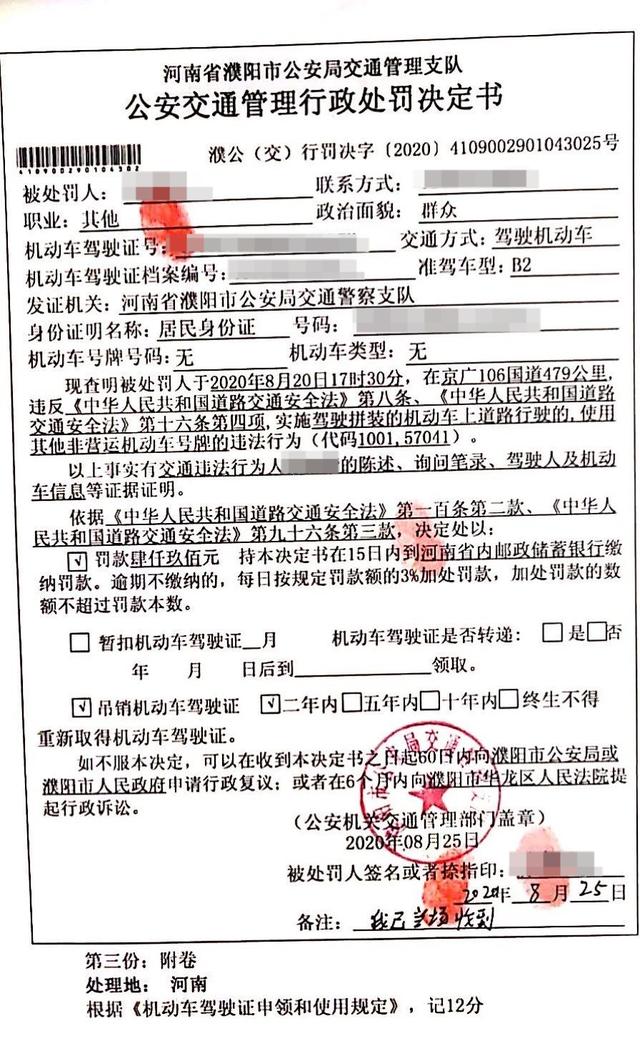 河南省濮阳市公安局交通管理支队
公安交通管理行政处罚决定书
濮公（交）行罚决字〔2020〕4109002901043025号
410900290104302
被处罚人：
联系方式：
职业：其他
政治面貌：群众
机动车驾驶证号：
交通方式：驾驶机动车
机动车驾驶证档案编号：
准驾车型：B2
发证机关：河南省濮阳市公安局交通警察支队
身份证明名称：居民身份证 号码：
机动车号牌号码：无 机动车类型：无
现查明被处罚人于2020年8月20日17时30分，在京广106国道479公里，
违反《中华人民共和国道路交通安全法》第八条、《中华人民共和国道路
交通安全法》第十六条第四项，实施驾驶拼装的机动车上道路行驶的，使用
其他非营运机动车号牌的违法行为（代码1001,57041）。
以上事实有交通违法行为人的陈述、询问笔录、驾驶人及机动
车信息等证据证明。
依据《中华人民共和国道路交通安全法》第一百条第二款、《中华人
民共和国道路交通安全法》第九十六条第三款，决定处以：
☑ 罚款肆仟玖佰元 持本决定书在15日内到河南省内邮政储蓄银行缴
纳罚款。逾期不缴纳的，每日按规定罚款额的3%加处罚款，加处罚款的数
额不超过罚款本数。
□ 暂扣机动车驾驶证__月 机动车驾驶证是否转递：□是□否
年 月 日后到________领取。
☑ 吊销机动车驾驶证 ☑二年内□五年内□十年内□终生不得
重新取得机动车驾驶证。
如不服本决定，可以在收到本决定书之日起60日内向濮阳市公安局或
濮阳市人民政府申请行政复议；或者在6个月内向濮阳市华龙区人民法院提
起行政诉讼。
（公安机关交通管理部门盖章）
2020年08月25日
被处罚人签名或者捺指印：
2020年8月25日
备注：我已当场收到
第三份：附卷
处理地： 河南
根据《机动车驾驶证申领和使用规定》，记12分